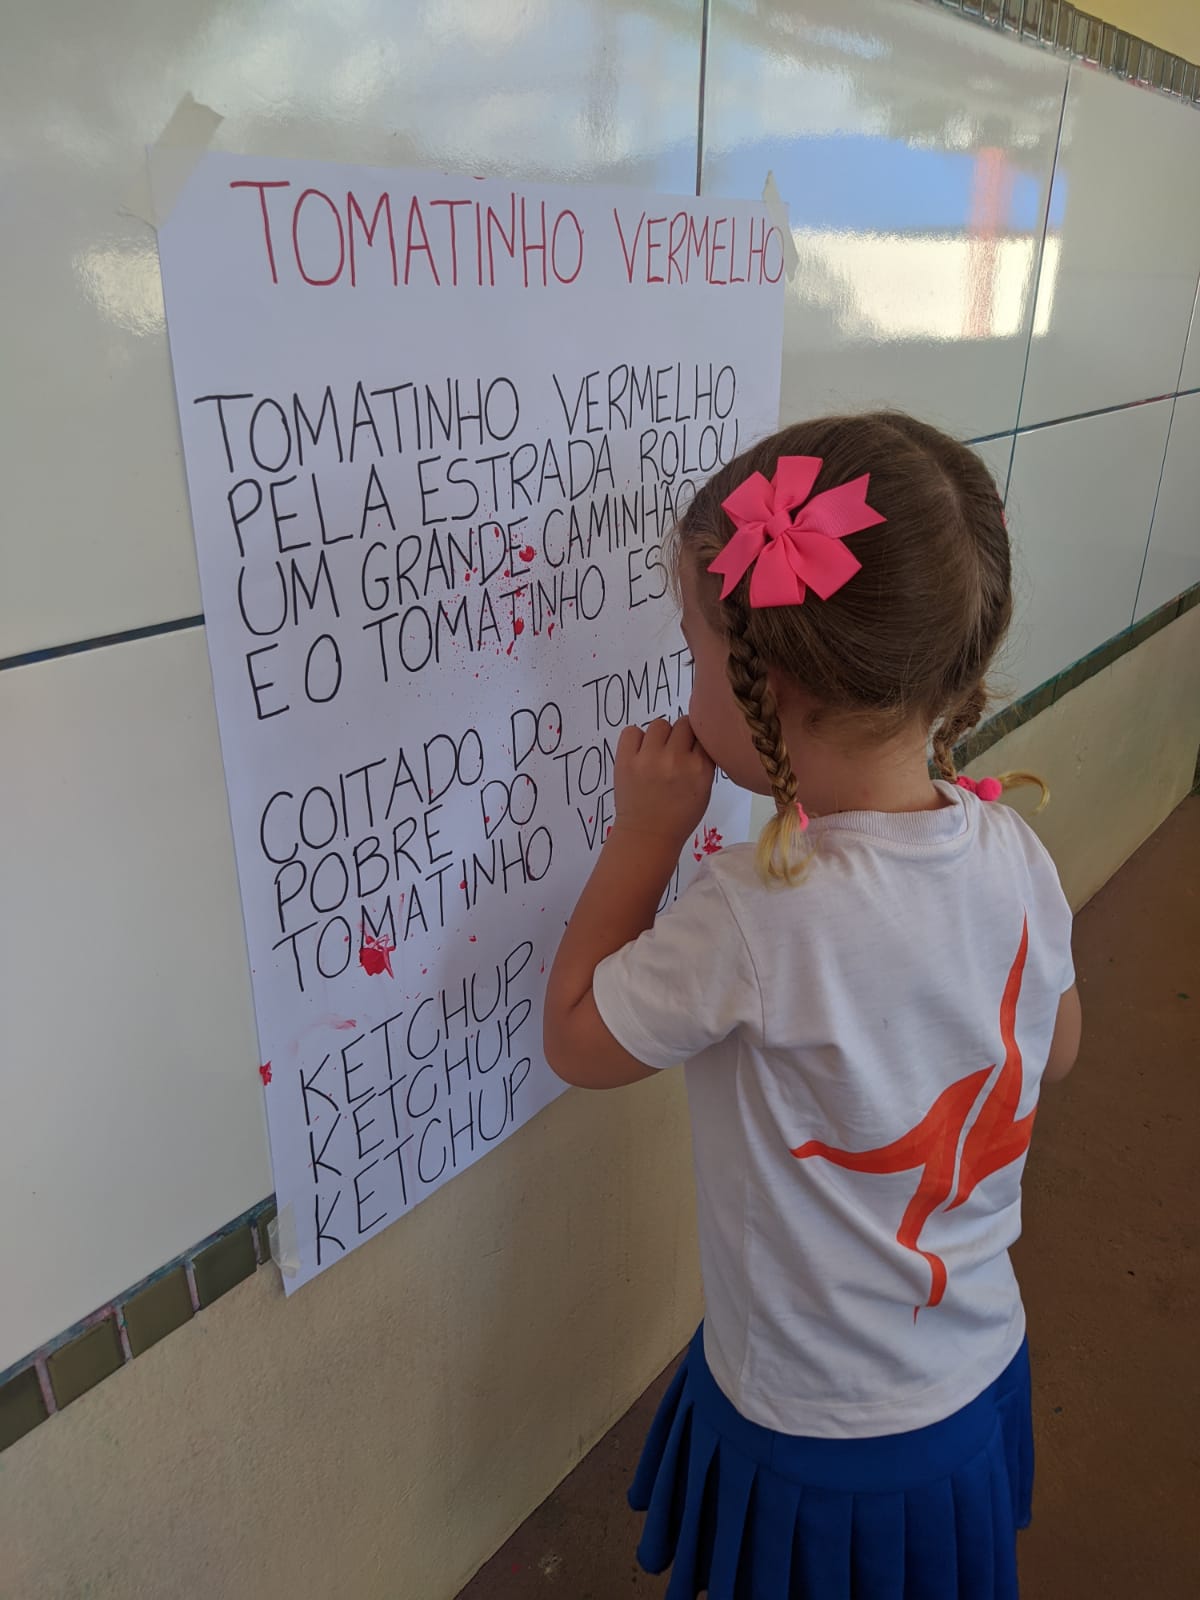 TOMATINHO VERMELHO
TOMATINHO VERMELHO
PELA ESTRADA ROLOU
UM GRANDE CAMINHÃO
E O TOMATINHO
COITADO DO
POBRE DO
TOMATINHO
KETCHUP
KETCHUP
KETCHUP